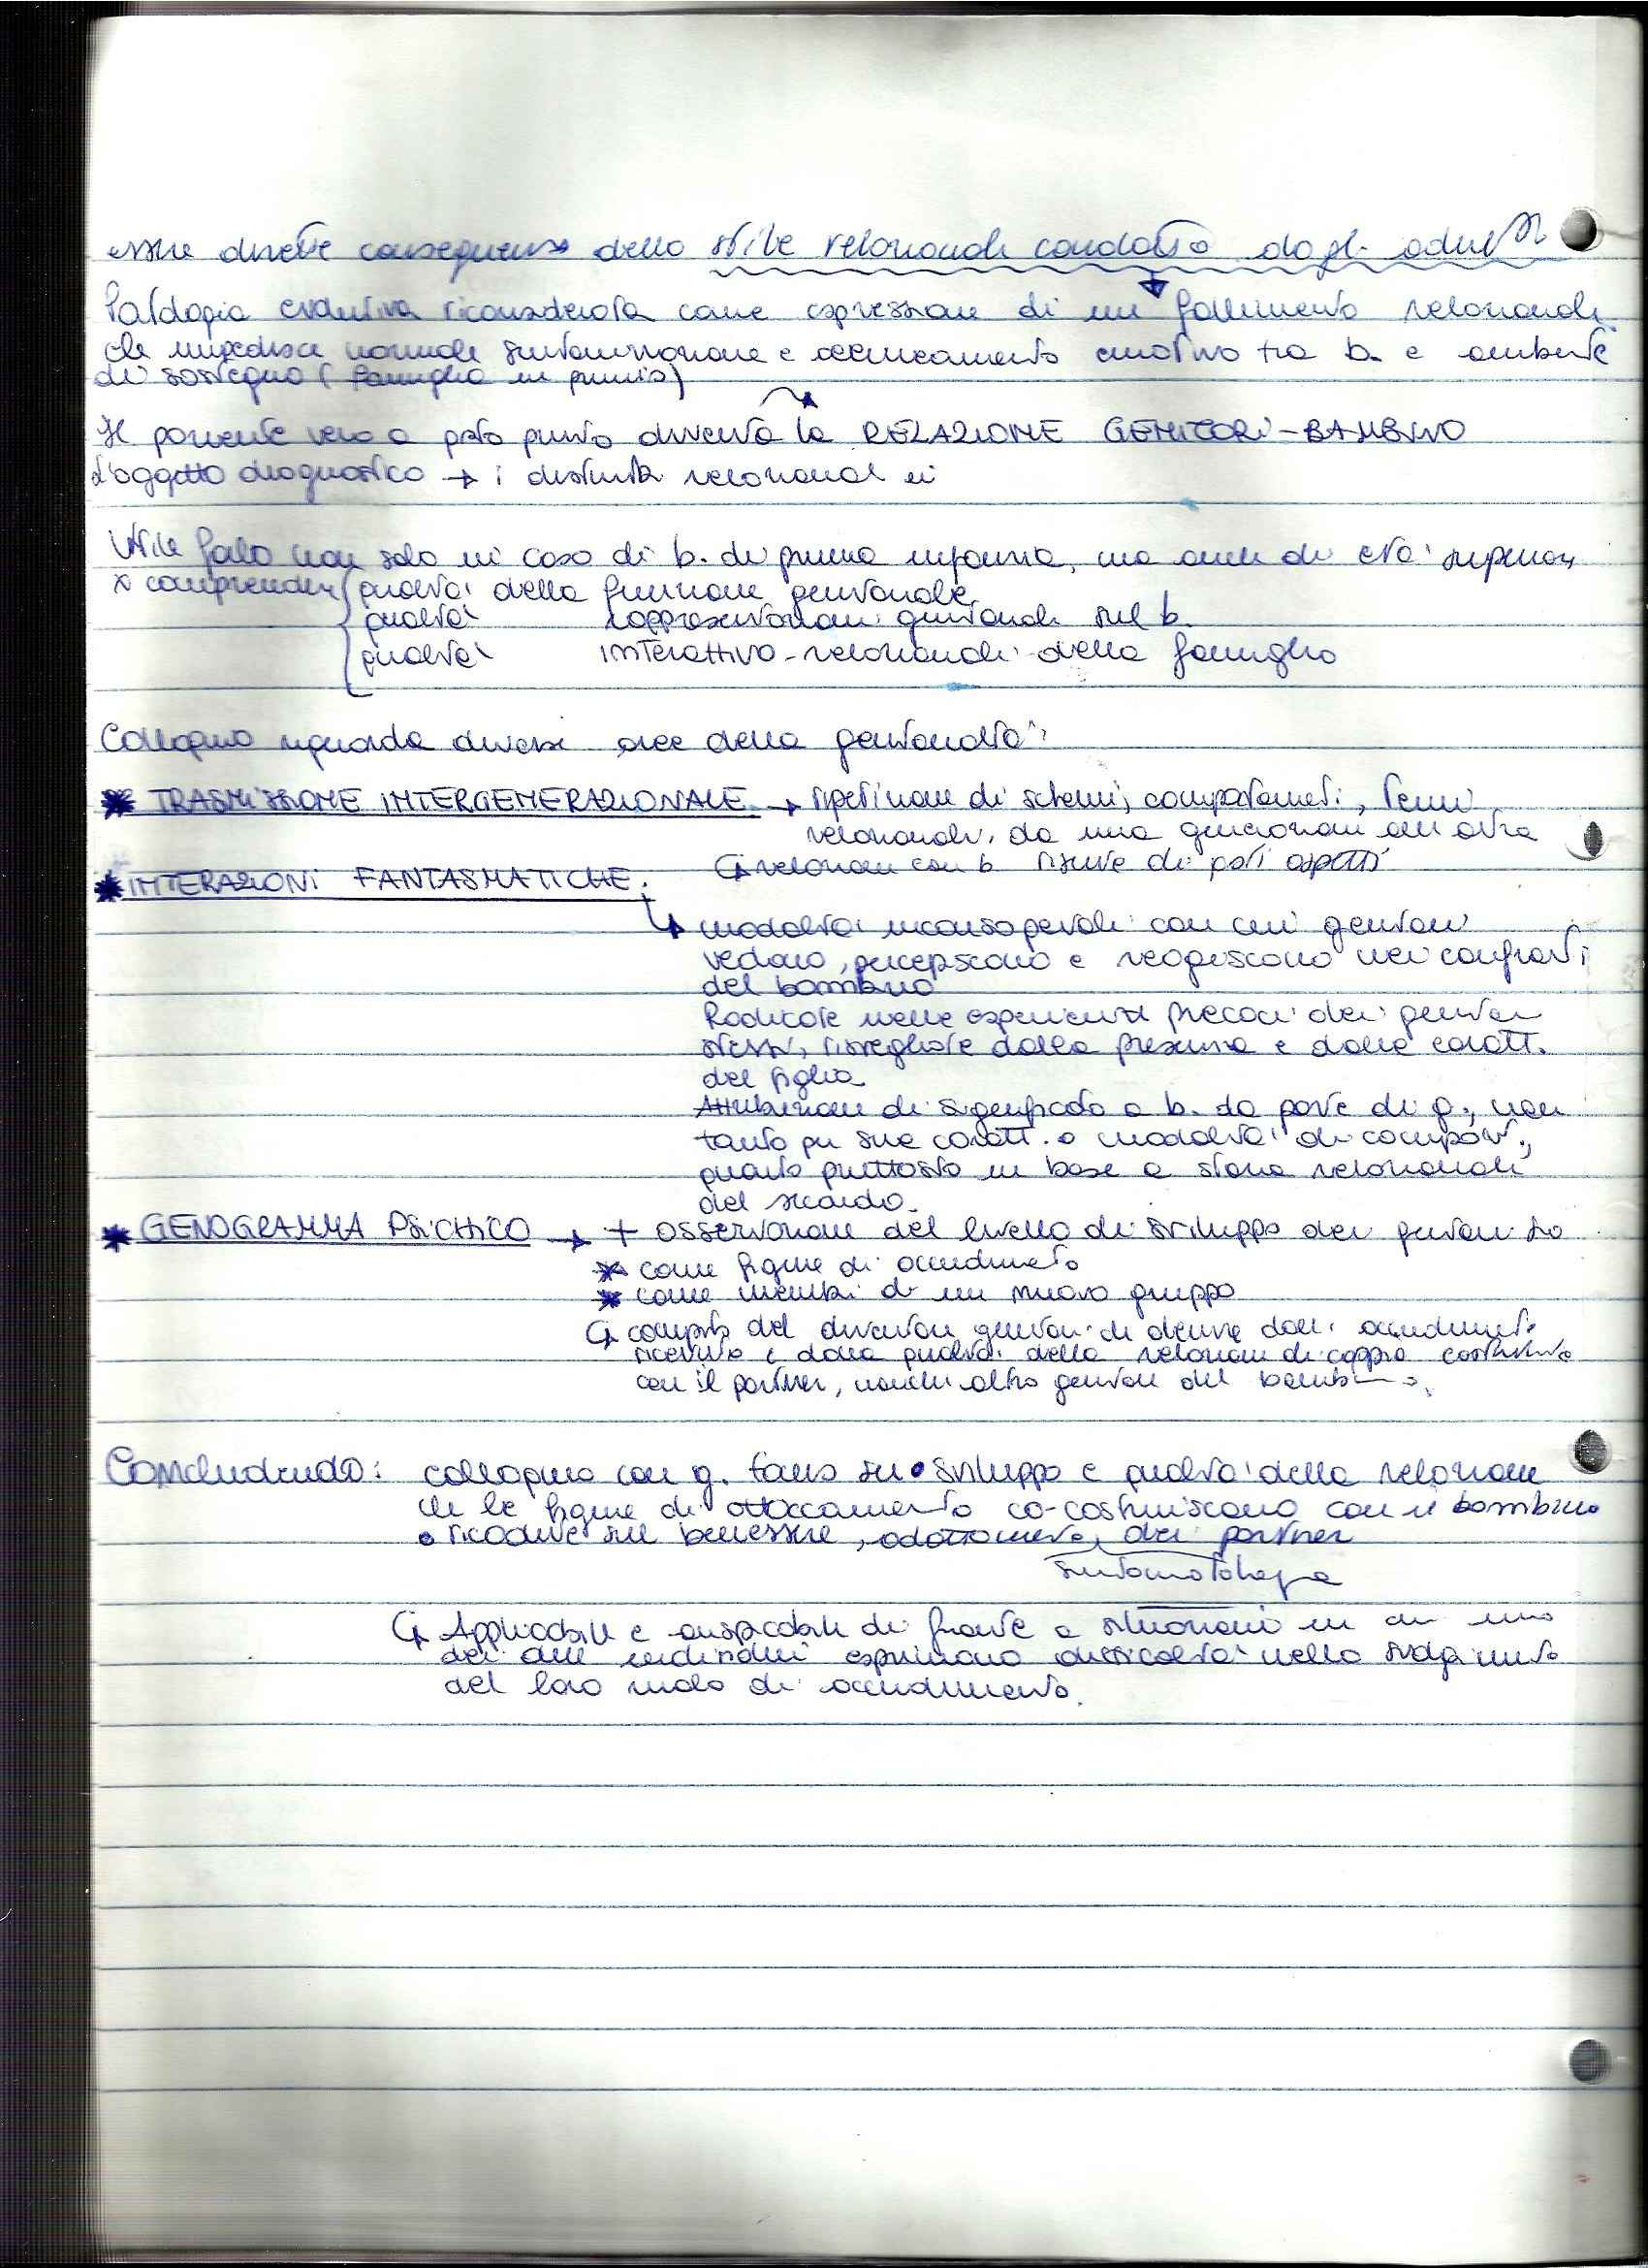 essere dirette conseguenze dello stile relazionale condotto dagli adulti
Patologia evolutiva riconsiderata come espressione di un fallimento relazionale
che impedisce normale sintonizzazione e accudimento emotivo tra b. e ambiente
di sostegno (famiglia in primis)
Il paziente vero a questo punto diventa la RELAZIONE GENITORI-BAMBINO
l'oggetto diagnostico → i disturbi relazionali
Utile farlo non solo in caso di b. di prima infanzia, ma anche di età superiori
x comprendere qualità della funzione genitoriale
qualità rappresentazioni genitoriali sul b.
qualità interattivo-relazionali della famiglia
Colloquio riguarda diverse aree della genitorialità:
* TRASMISSIONE INTERGENERAZIONALE → ripetizione di schemi, comportamenti, temi
relazionali, da una generazione all'altra
relazione con b risente di questi aspetti
* INTERAZIONI FANTASMATICHE:
modalità inconsapevoli con cui genitori
vedono, percepiscono e reagiscono nei confronti
del bambino
Radicate nelle esperienze precoci dei genitori
stessi, risvegliate dalla presenza e dalle caratt.
del figlio
Attribuzione di significato a b. da parte di g., non
tanto per sue caratt. o modalità di comport.,
quanto piuttosto in base a storia relazionale
del secondo.
* GENOGRAMMA PSICHICO → + osservazione del livello di sviluppo dei genitori sia
* come figure di accudimento
* come membri di un nuovo gruppo
compito del diventare genitori di deriva dall' accudimento
ricevuto e dalla qualità della relazione di coppia costruita
con il partner, nonché altro genitore del bambino.
Concludendo: colloquio con g. fatto su • sviluppo e qualità della relazione
che le figure di attaccamento co-costruiscono con il bambino
• ricadute sul benessere, adattamento, dei partner
sintomatologia
Applicabile e auspicabile di fronte a situazioni in cui uno
dei due individui esprimano difficoltà nello svolgimento
del loro ruolo di accudimento.